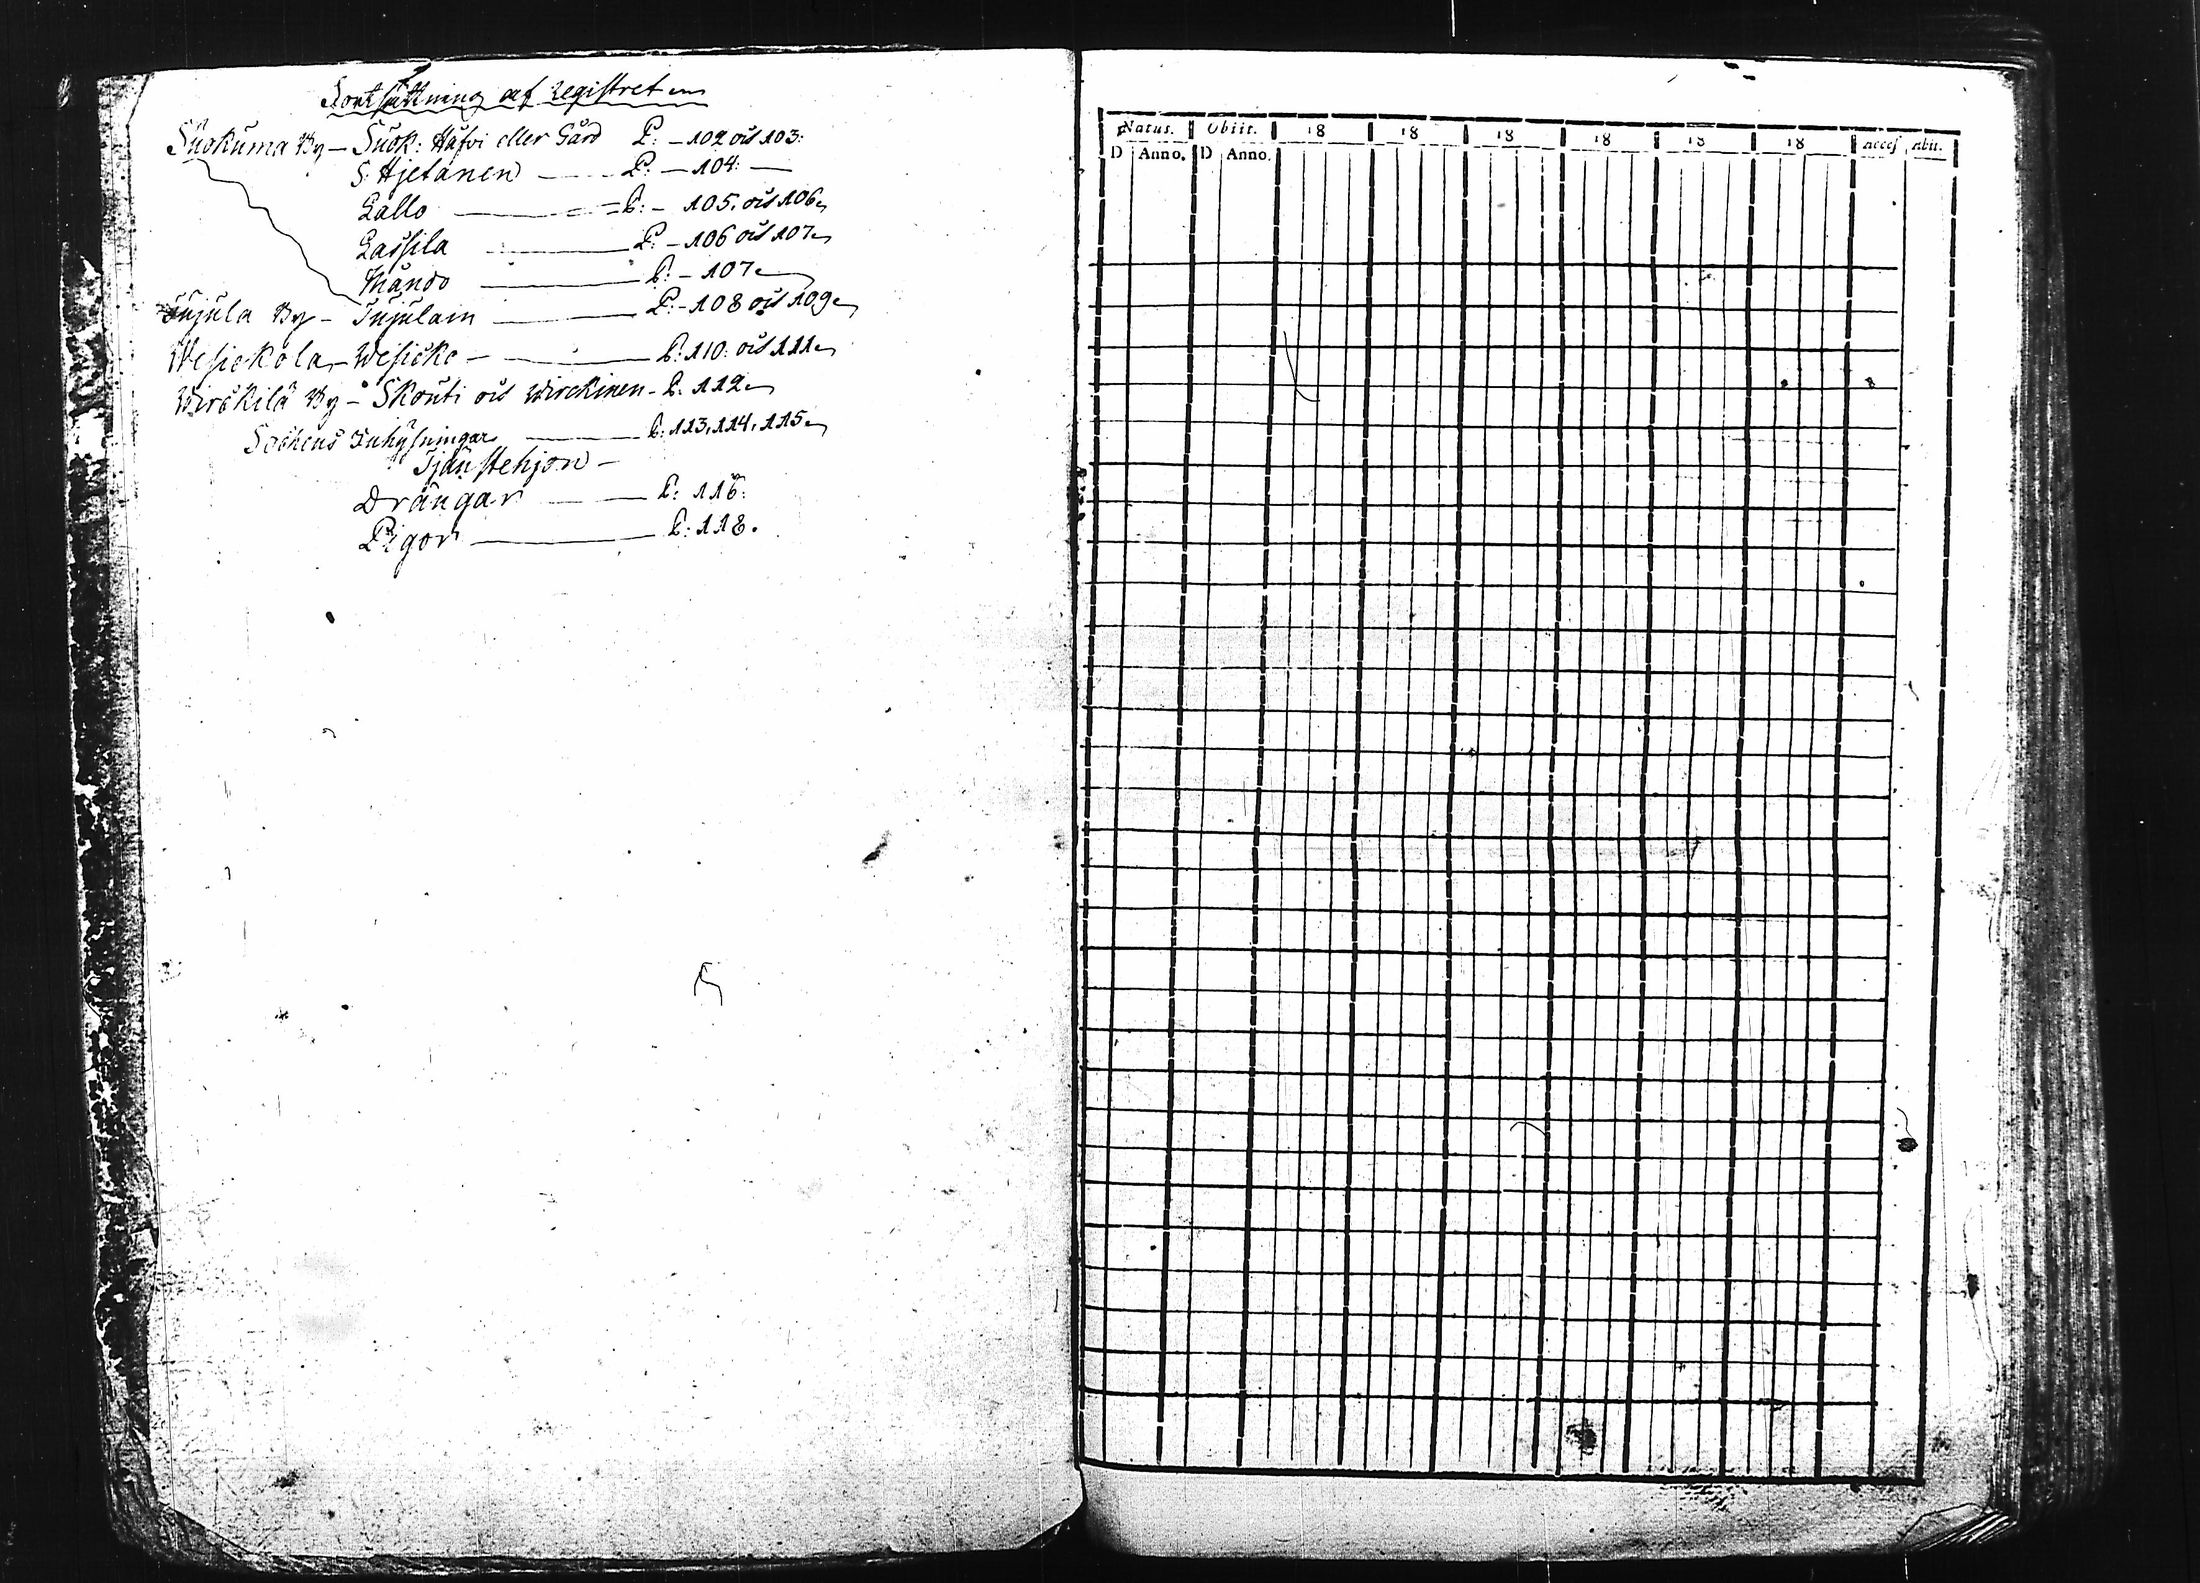 Fortsättning af registret
Suokuma By — Suok: Håfvi eller Gård P: — 102 och 103:
S. Hjetanen — P: — 104: —
Lallo — P: — 105. och 106
Lassila — P: — 106 och 107
Mando — P: — 107
Tujula By — Tujulain — P: — 108 och 109
Wesickola — Wesicko — P: 110: och 111
Wirckilä By — Skouti och Wirckinen — P: 112
Sockens Inhysningar — P: 113, 114, 115
Tjänstehjon —
Drängar — P: 116:
Pigor — P: 118.
Natus. Obiit. 18 18 18 18 18 18 Acces Abit.
D Anno. D Anno.